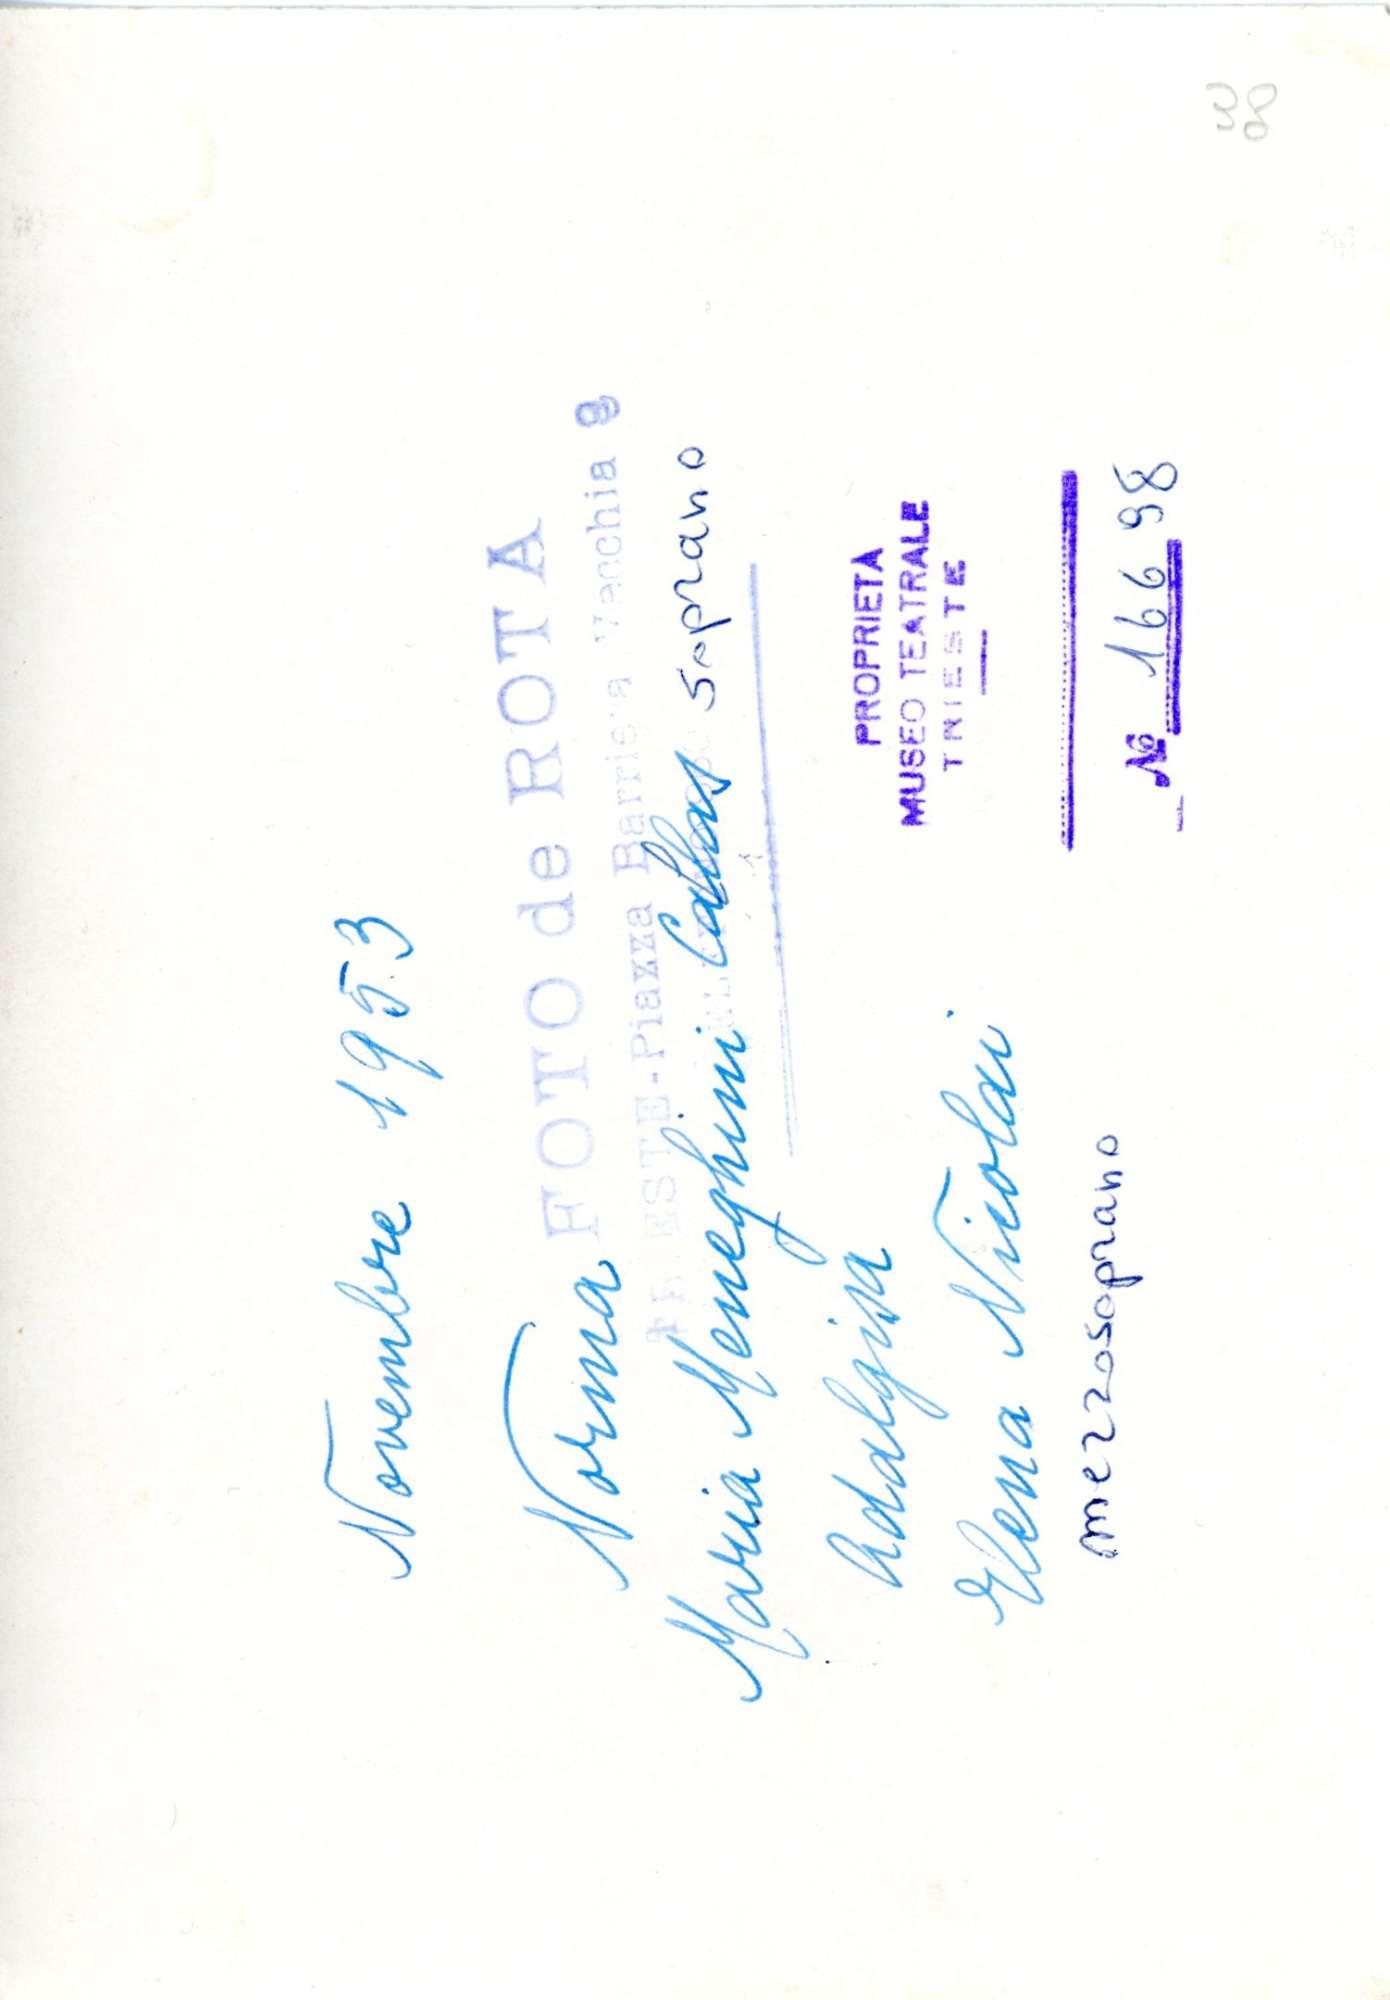 38
Novembre 1953
FOTO de ROTA
Norma
TRIESTE-Piazza Barriera Vecchia 8
Maria Meneghini Callas soprano
Adalgisa
Elena Nicolai
mezzosoprano
PROPRIETA
MUSEO TEATRALE
TRIESTE
№ 16698